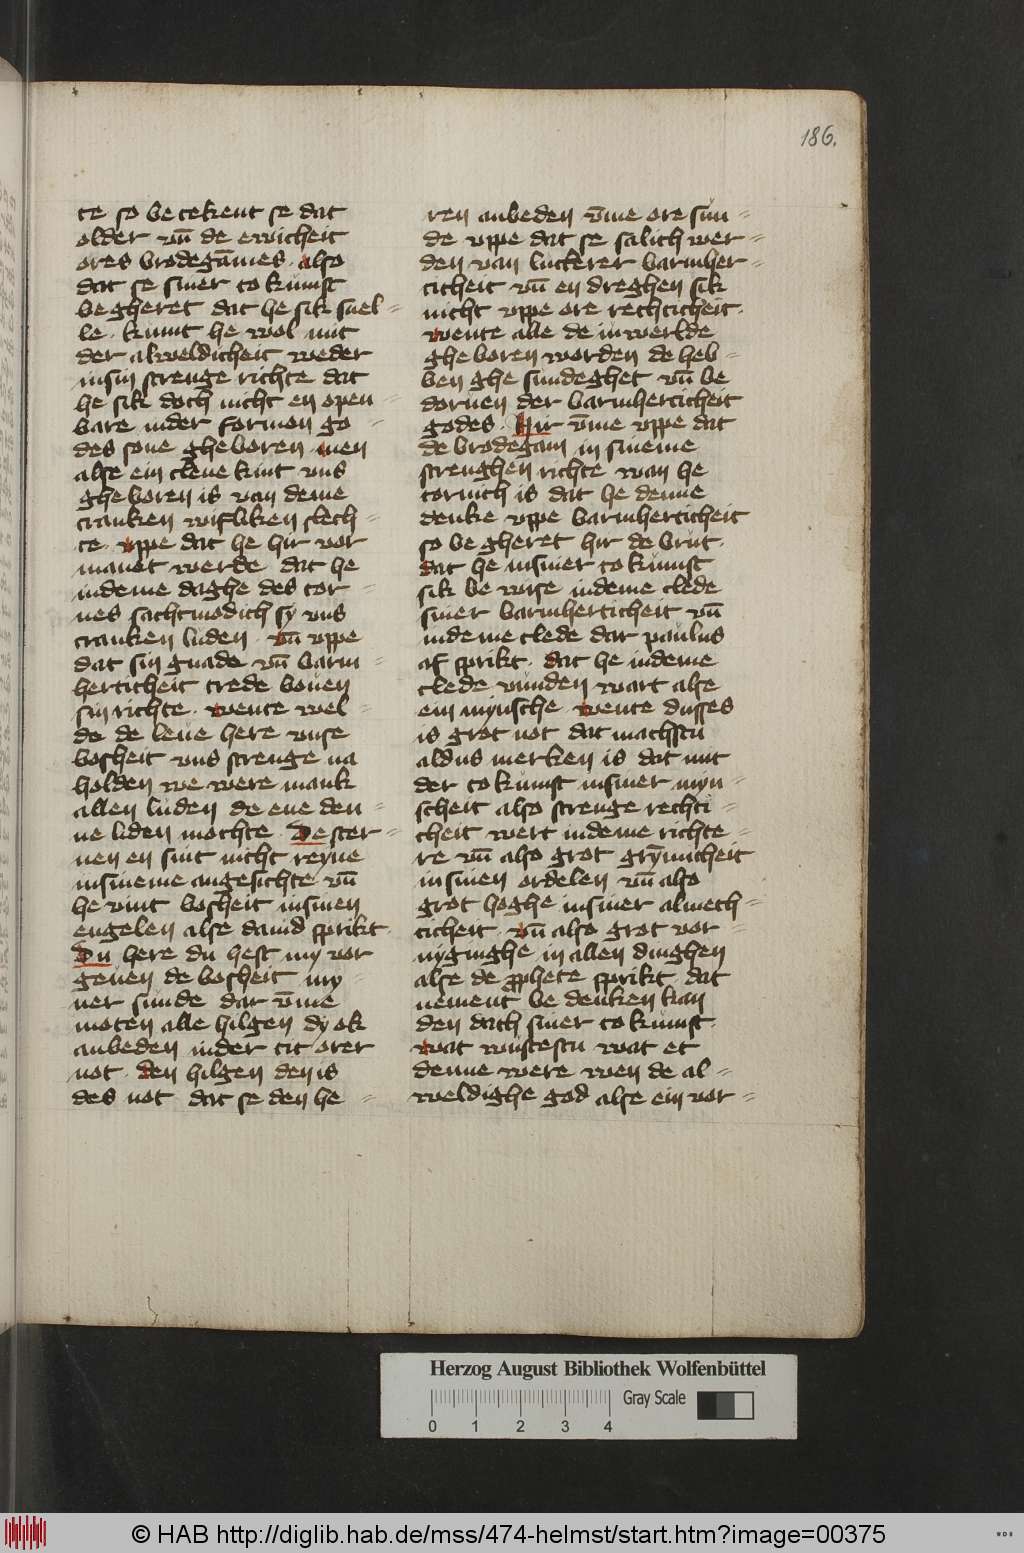 186.
te so be tekent se dat
older vn̄ de ewicheit
ores brodegāmes · also
dat se siner to kůmst
begheret dat he sik snel=
le · kumt he wol mit
der alweldicheit weder
insin strenge richte dat
he sik doch nicht en open=
bare inder formon go=
des sone gheboren · men
alse ein cleyne kint vns
gheboren is van deme
cranken wifliken slech=
te · vppe dat he hir vor
manet werde dat he
indeme daghe des tor=
nes sachtmodich sy vns
cranken luden · vn̄ vppe
dat sin gnade vn̄ barm=
herticheit trede boven
sin richte · wente wel=
de de leue here vnse
bosheit vns strenge na
holden we were mank
allen luden de ene den=
ne liden mochte · De ster=
nen en sint nicht reyne
insineme angesichte vn̄
he vint bosheit insinen
engelen alse dauid sprikt
Du here du hest my vor
geuen de bosheit my=
ner sunde dar v̄me
moten alle hilgen dy ok
anbeden inder tit orer
not · den hilgen den is
des not dat se den he=
ren anbeden v̄me ore sun=
de vppe dat se salich wer=
den van lutterer barmher=
ticheit vn̄ en dreghen sik
nicht vppe ore rechticheit ·
wente alle de inwerlde
gheboren worden de heb=
ben ghe sundeghet vn̄ be
doruen der barmherticheit
godes · Hir v̄me vppe dat
de brodegam in sineme
strenghen richte wan he
tornich is dat he denne
denke vppe barmherticheit
so begheret hir de brut ·
dat he insiner to kůmst
sik be wise indeme clede
siner barmherticheit vn̄
indeme clede dar paulus
af sprikt · dat he indeme
clede vunden wart alse
ein mynsche · wente dusses
is grot not dat machstu
aldus merken is dat mit
der to kůmst insiner myn=
scheit also strenge rechti=
cheit wert indeme richte=
re vn̄ also grot grȳmicheit
in sinen ordelen vn̄ also
grot hoghe insiner almech=
ticheit · vn̄ also grot vor=
nyginghe in allen dinghen
alse de prphete sprikt dat
nement be denken kan
den dach siner to kůmst
wat wustestu wat et
denne were wen de al=
weldighe god alse ein vor=
Herzog August Bibliothek Wolfenbüttel
Gray Scale
0 1 2 3 4
© HAB http://diglib.hab.de/mss/474-helmst/start.htm?image=00375